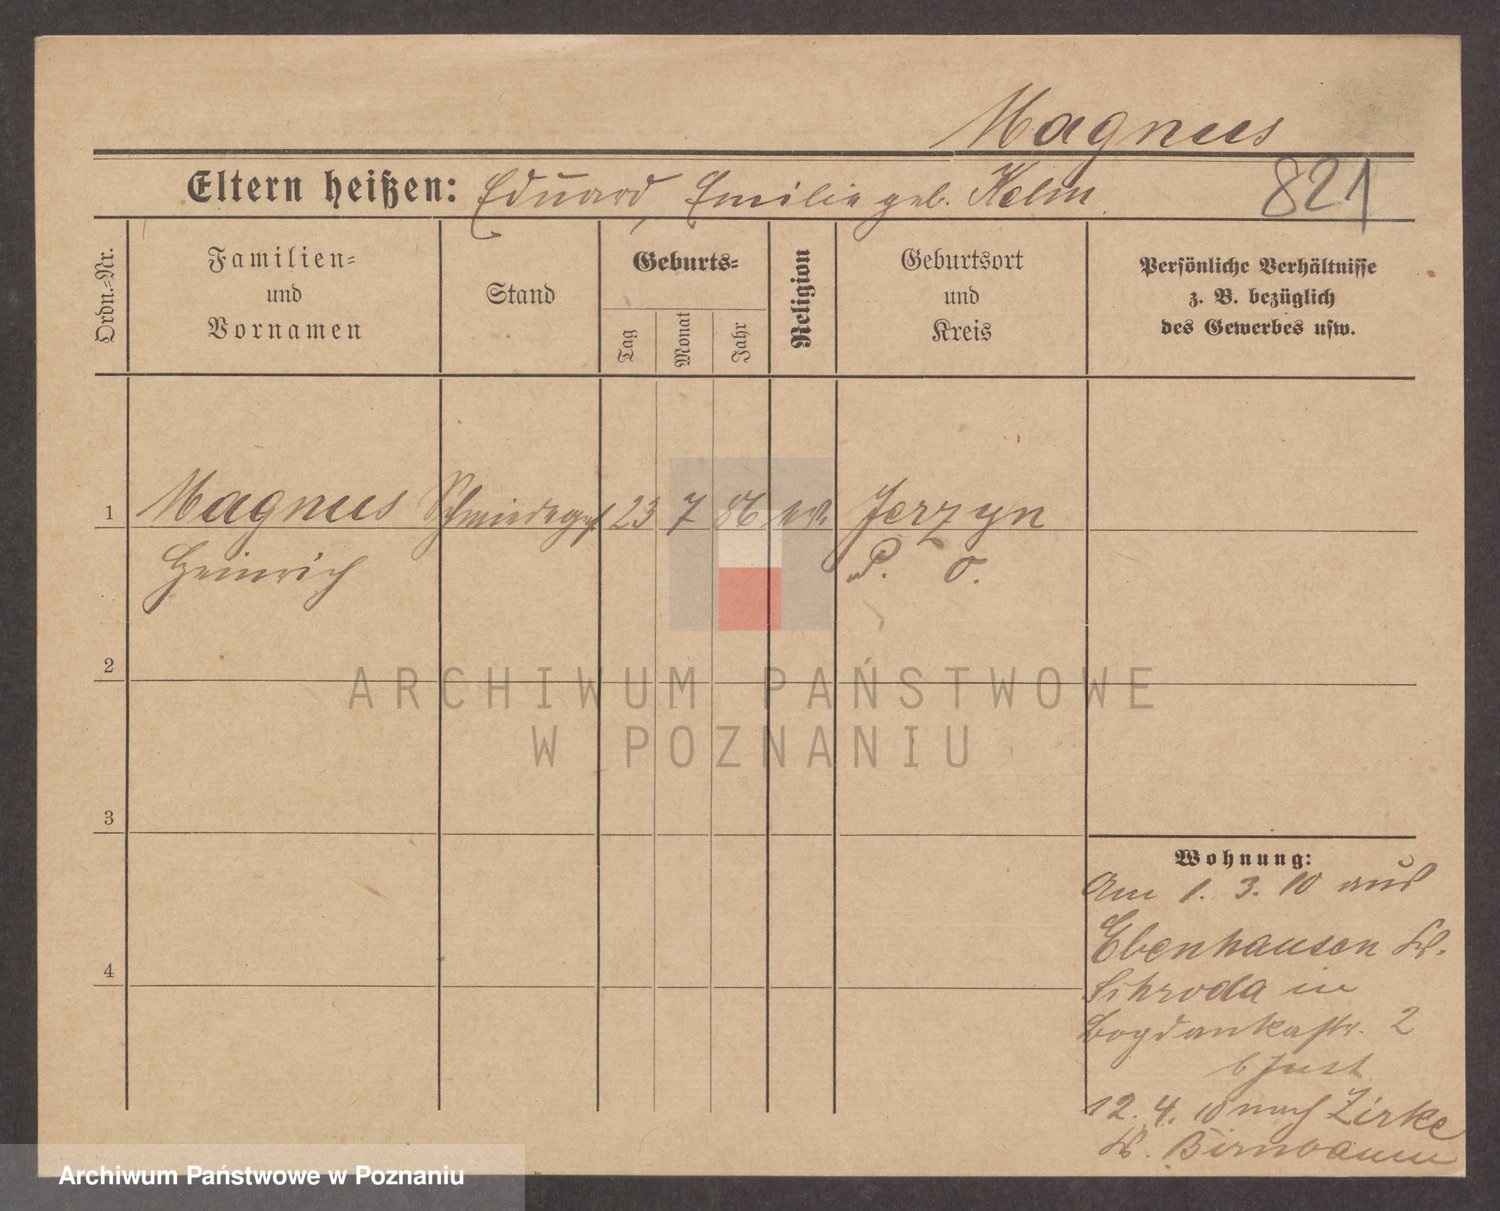 Magnus
Eltern heißen: Eduard, Emilie geb. Kelm
821
Ordn.=Nr.
Familien=
und
Vornamen
Stand
Geburts=
Tag
Monat
Jahr
Religion
Geburtsort
und
Kreis
Persönliche Verhältnisse
z. B. bezüglich
des Gewerbes usw.
1 Magnus Schmiedeges 23 7 86 ev. Jerzyn
Heinrich P. O.
2
3
4
Wohnung:
Am 1. 3. 10 aus
Ebenhausen Kr.
Schroda in
Bogdankastr. 2
b Just
12. 4. 10 nach Zirke
Kr. Birnbaum
ARCHIWUM PAŃSTWOWE
W POZNANIU
Archiwum Państwowe w Poznaniu